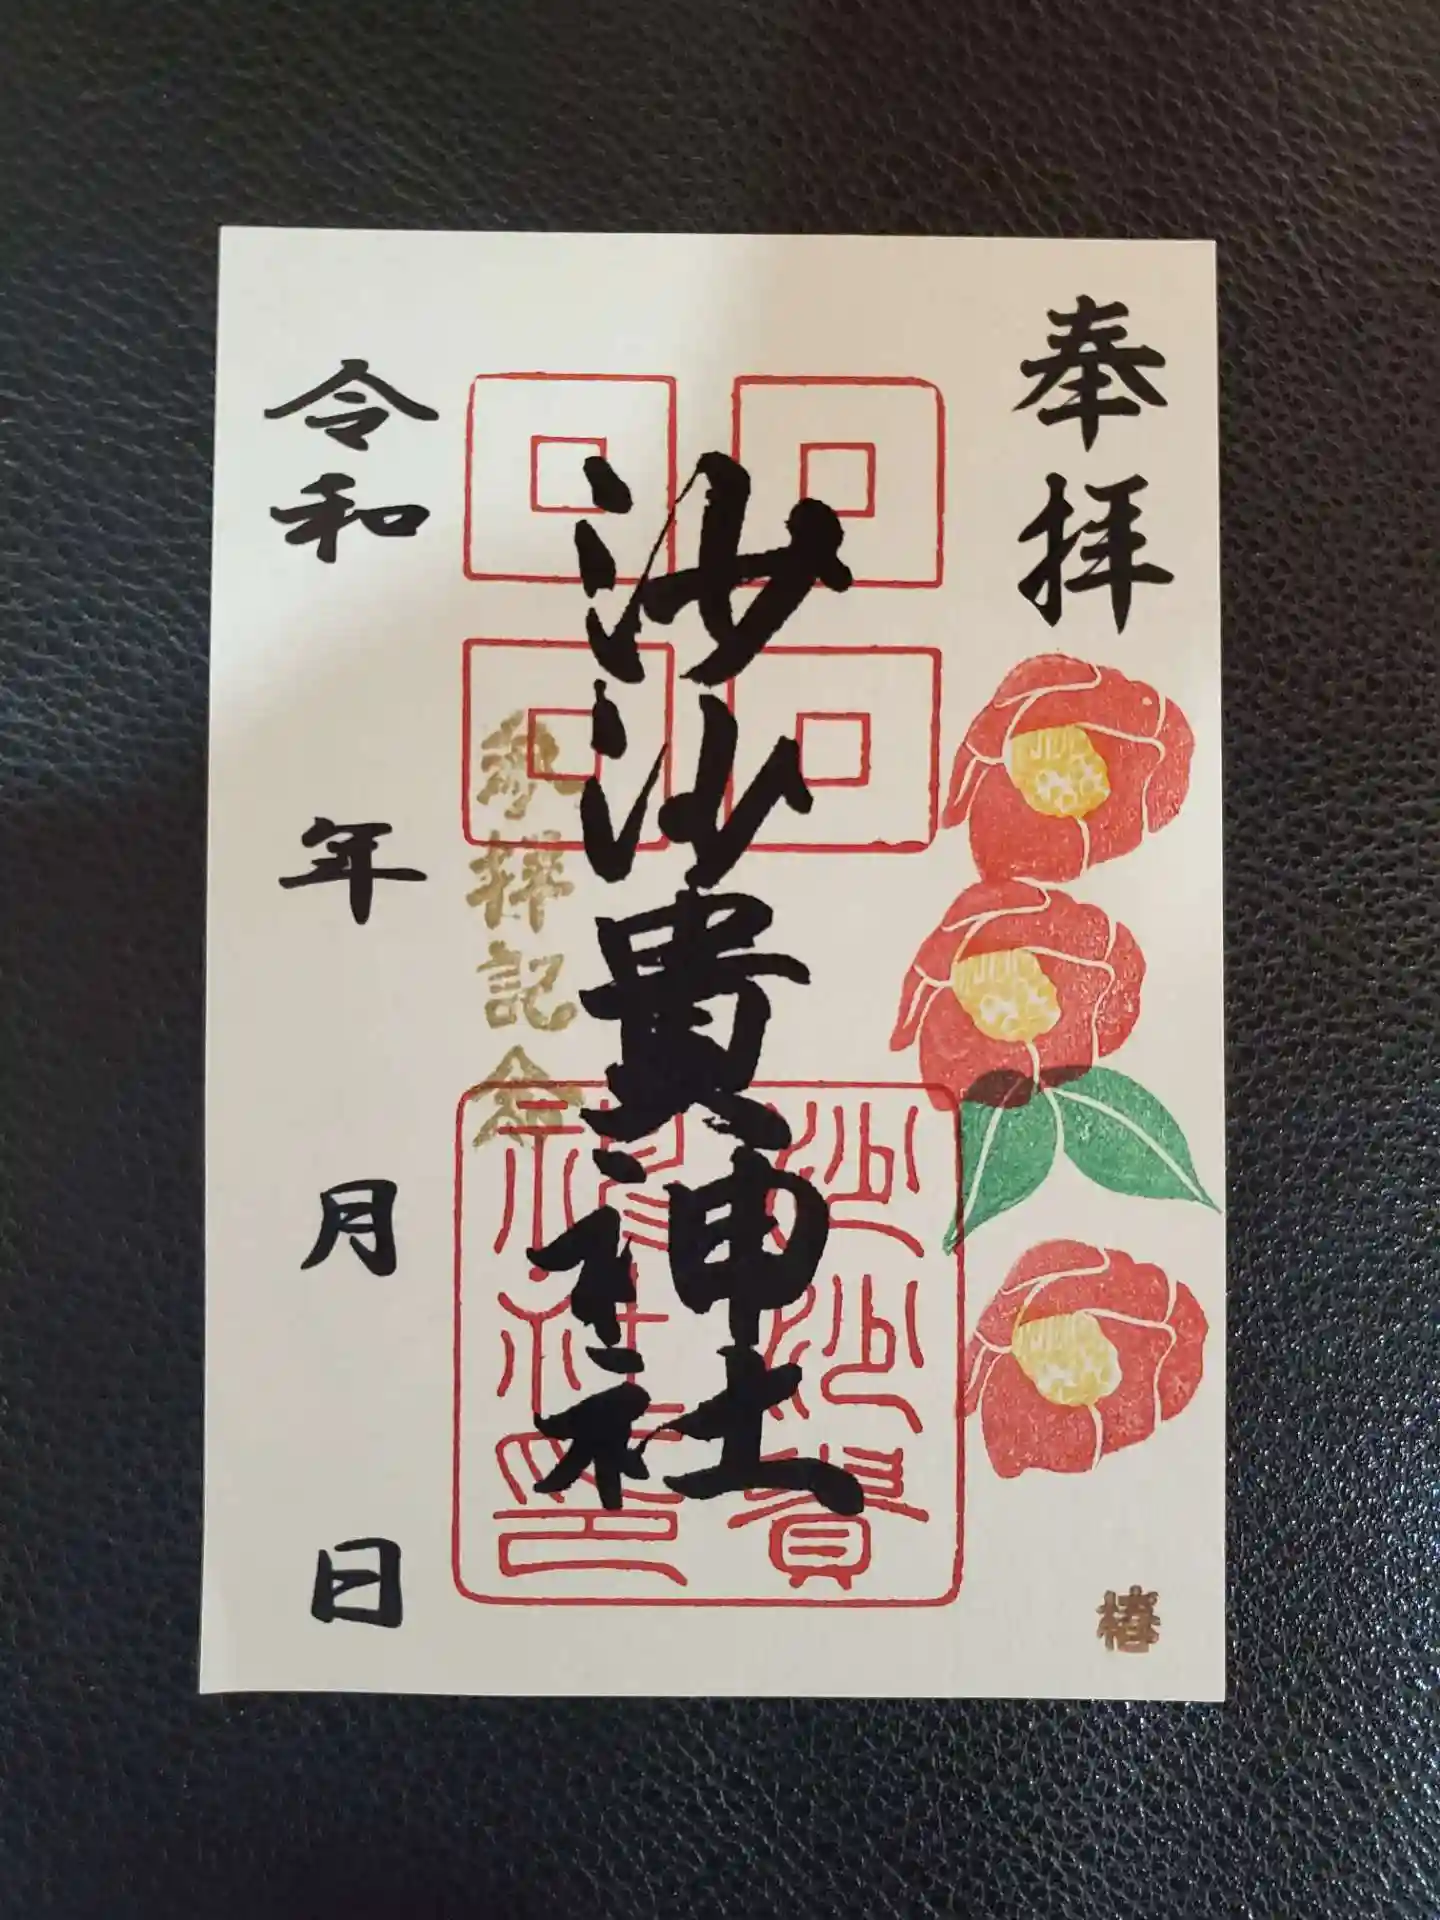 奉拝
椿
沙沙貴神社
沙沙貴
神社印
参拝記念
令和 年 月 日